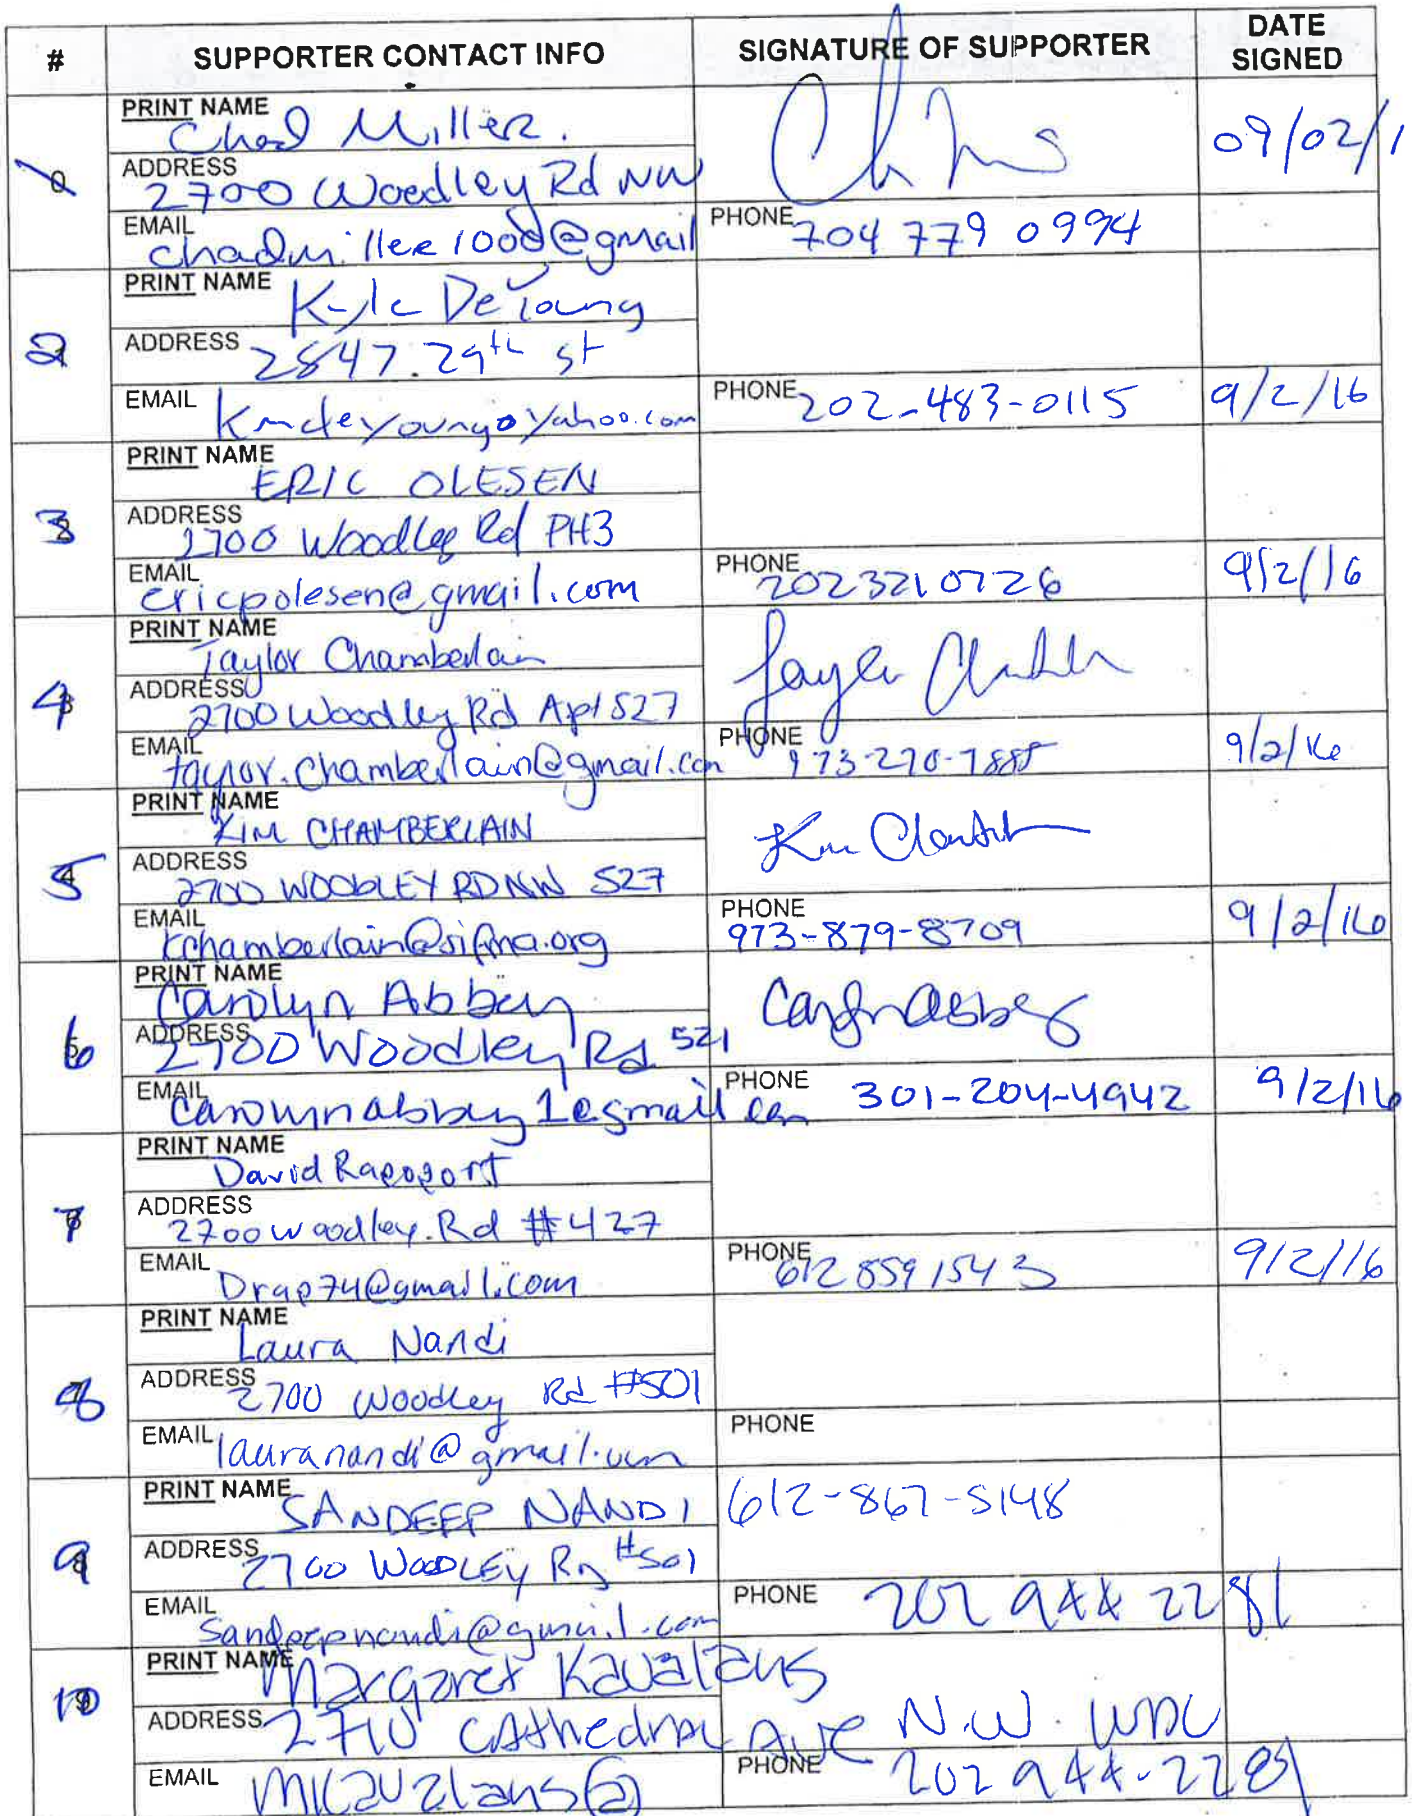 # SUPPORTER CONTACT INFO SIGNATURE OF SUPPORTER DATE SIGNED
PRINT NAME Chad Miller.
09/02/1
ADDRESS 2700 Woodley Rd NW
EMAIL chadmiller1000@gmail PHONE 704 779 0994
2
PRINT NAME Kyle DeYoung
ADDRESS 2847 . 29th St
EMAIL kmdeyoung@yahoo.com PHONE 202-483-0115 9/2/16
3
PRINT NAME ERIC OLESEN
ADDRESS 2700 Woodley Rd PH3
EMAIL ericpolesen@gmail.com PHONE 2023210726 9/2/16
4
PRINT NAME Taylor Chamberlain
ADDRESS 2700 Woodley Rd Apt 527
EMAIL taylor.chamberlain@gmail.com PHONE 973-270-7885 9/2/16
5
PRINT NAME KIM CHAMBERLAIN
ADDRESS 2700 WOODLEY RD NW 527
EMAIL kchamberlain@sifma.org PHONE 973-879-8709 9/2/16
6
PRINT NAME Carolyn Abbey Carolyn Abbey
ADDRESS 2700 Woodley Rd 521
EMAIL carolynabbey1@gmail.com PHONE 301-204-4942 9/2/16
7
PRINT NAME David Rapoport
ADDRESS 2700 woodley. Rd #427
EMAIL Drap74@gmail.com PHONE 612 859 1543 9/2/16
8
PRINT NAME Laura Nandi
ADDRESS 2700 Woodley Rd #501
EMAIL lauranandi@gmail.com PHONE
9
PRINT NAME SANDEEP NANDI 612-867-5148
ADDRESS 2700 WOODLEY RD #501
EMAIL sandeepnandi@gmail.com PHONE 202 944 2281
10
PRINT NAME Margaret Kavalaus
ADDRESS 2710 Cathedral Ave N.W. WDC
EMAIL PHONE 202 944-2281